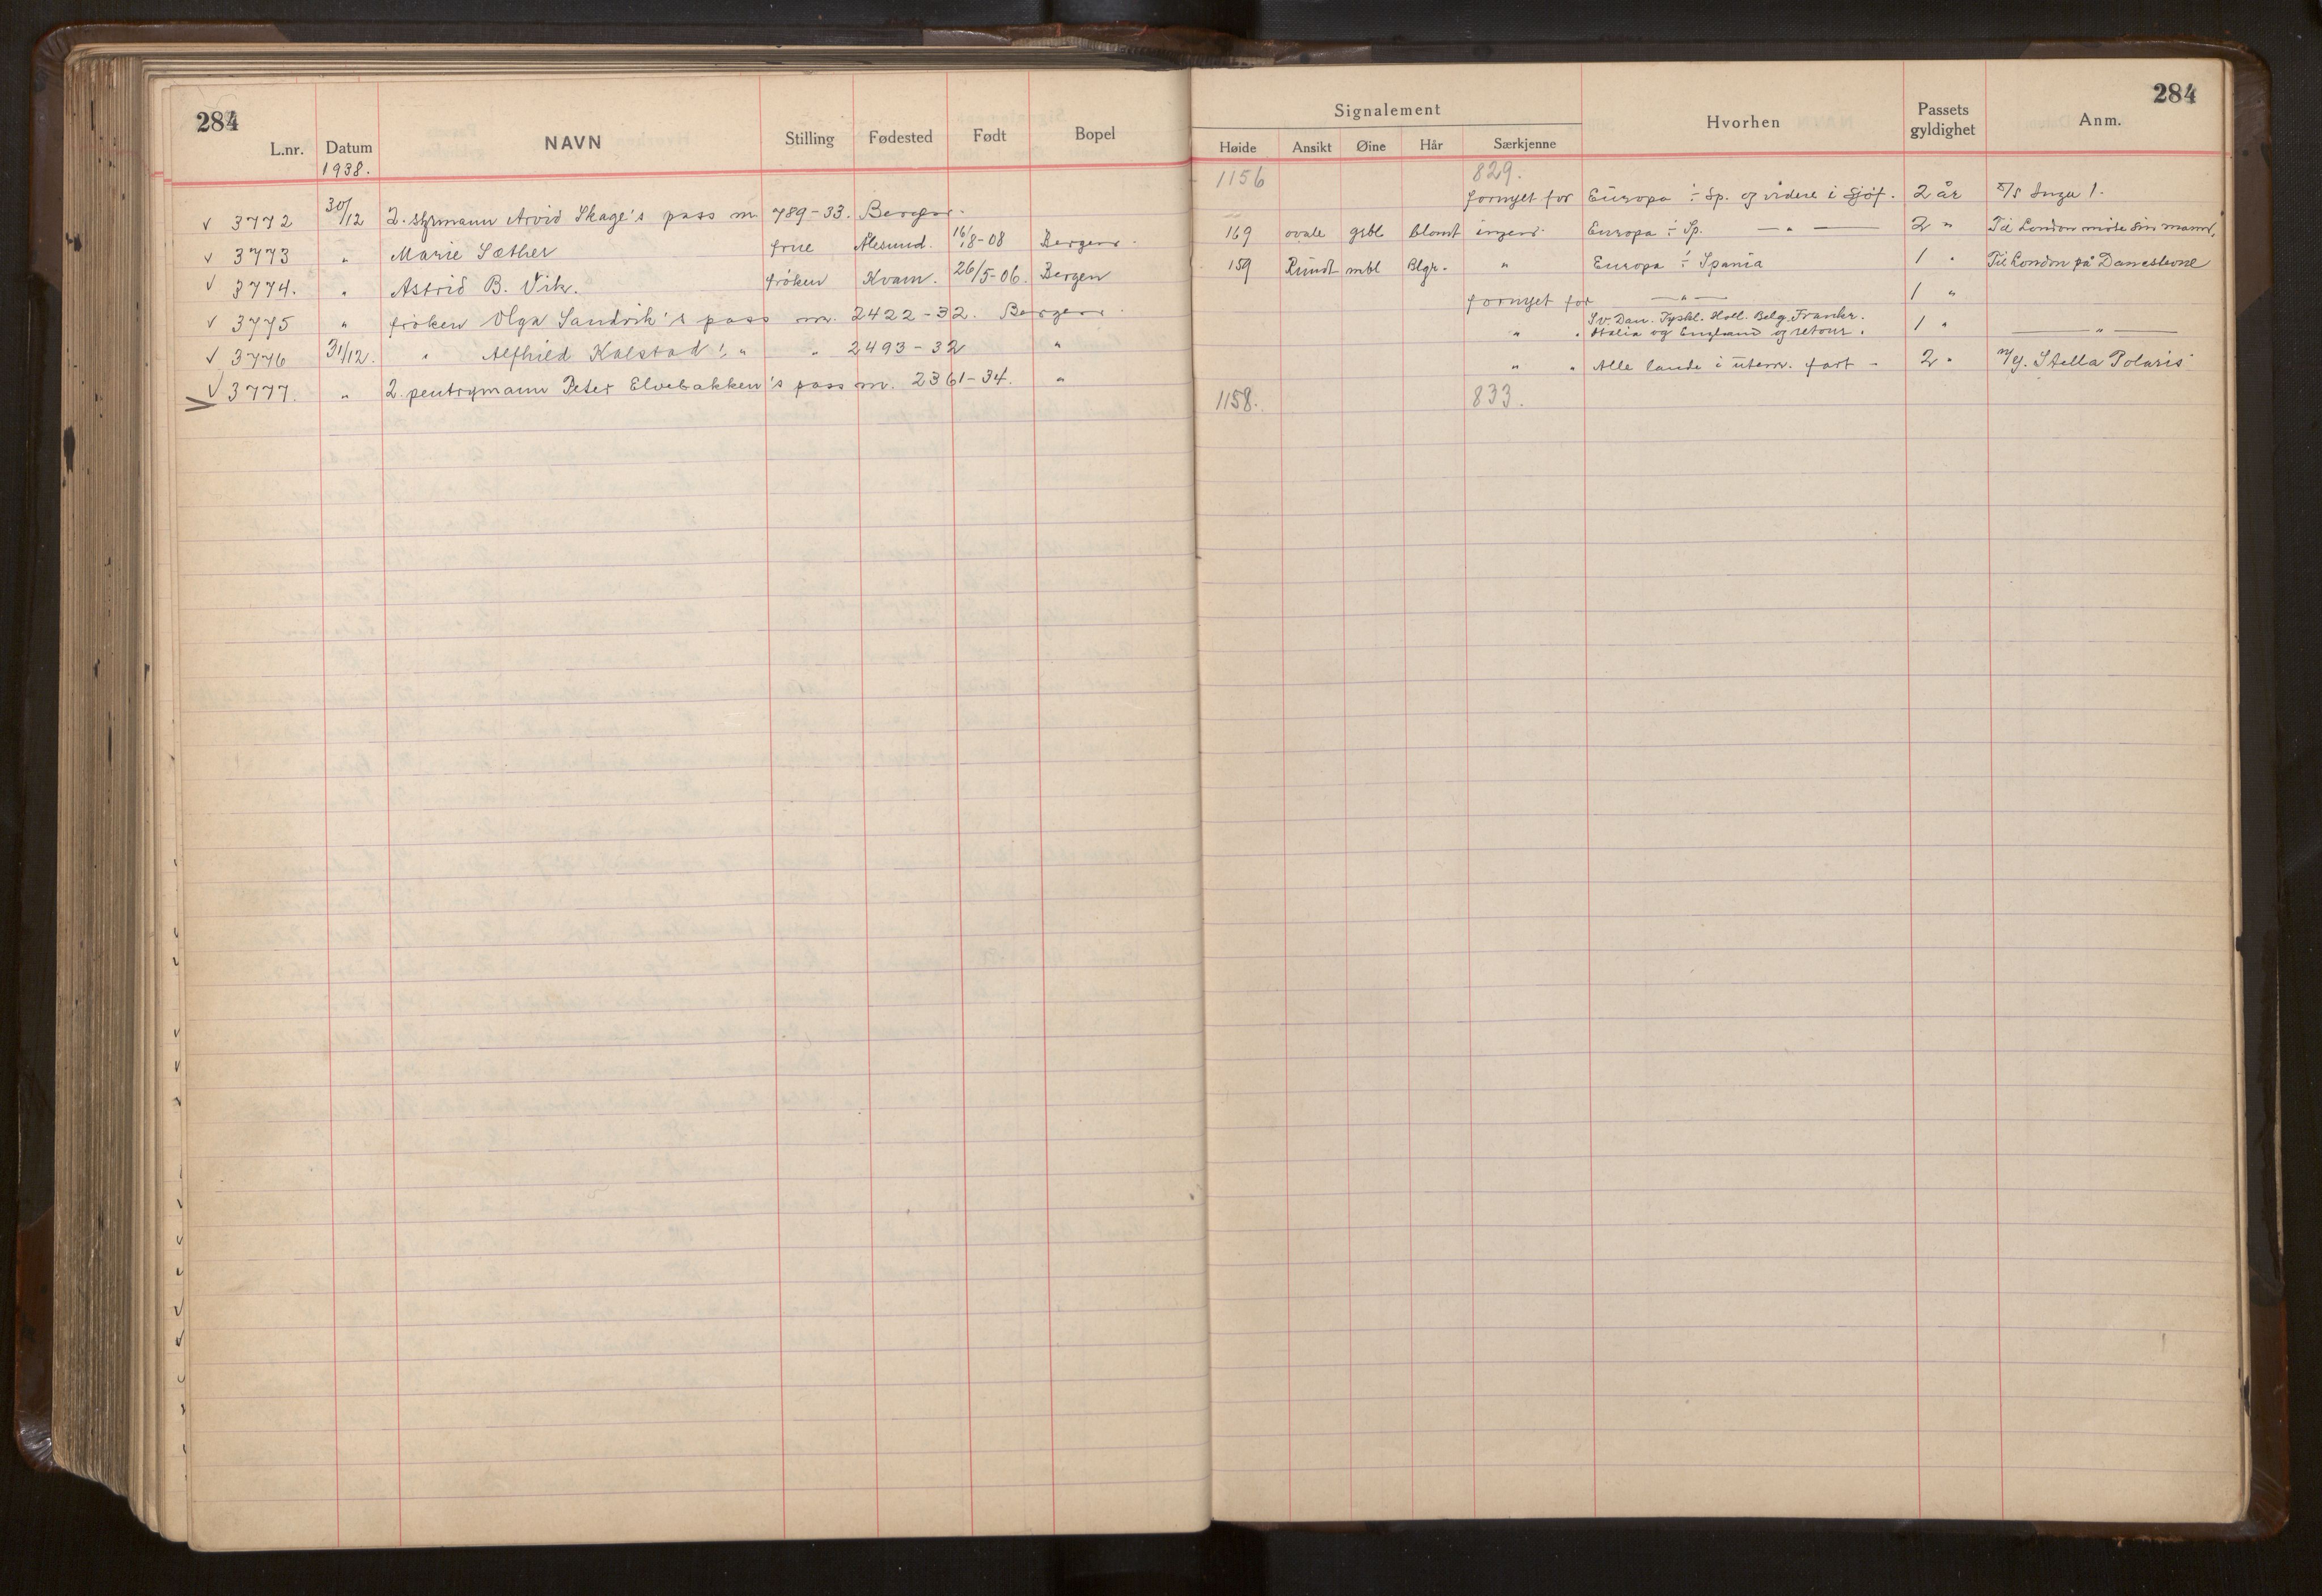 284
284
Signalement
L.nr. Datum NAVN Stilling Fødested Født Bopel Høide Ansikt Øine Hår Særkjenne Hvorhen Passets gyldighet Anm.
1938.
1156 829.
√ 3772 30/12 2. styrmann Arvid Skage's pass nr. 789-33. Bergen. fornyet for Europa ÷ Sp. og videre i sjøf. 2 år S/S Inger 1.
√ 3773 " Marie Sæther frue Ålesund. 16/8-08 Bergen. 169 ovale grbl blondt ingen. Europa ÷ Sp. — " — 2 " Til London møte sin mann.
√ 3774. " Astrid B. Vik. frøken Kvam. 26/5-06. Bergen 159 Rundt mbl Blgr. " Europa ÷ Spania 1 " Til London på
√ 3775 " frøken Olga Sandvik's pass nr. 2422-32. Bergen. fornyet for — " — 1 "
√ 3776 31/12. " Alfhild Kalstad's " " 2493-32 " " " Sv. Dan. Tyskl. Holl. Belg. Frankr.
Italia og England og retour. 1 " — " —
√ 3777. " 2. pentrymann Peter Elvebakken's pass nr. 2361-34. " " " Alle lande i utenr. fart - 2 " M/Y. Stella Polaris
1158. 833.